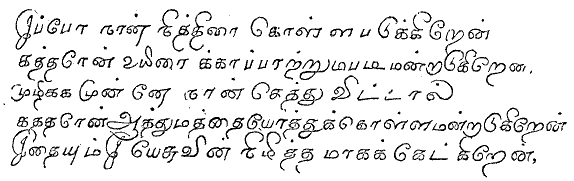 இப்போ நான் நித்திரை கொள்ள படுக்கிறேன்
கத்தரேன் உயிரை க்காப்பாற்றுமபடி மன்றடுகிறேன.
முழிகக முன் னே நான் செத்து விட்டால்
கததரேன் ஆத்துமத்தையேர்த்துக்கொள்ள மன்றடுகிறேன்
இதையும் இ யேசுவின் நிமித்த மாகக் கேட் கிறேன்,